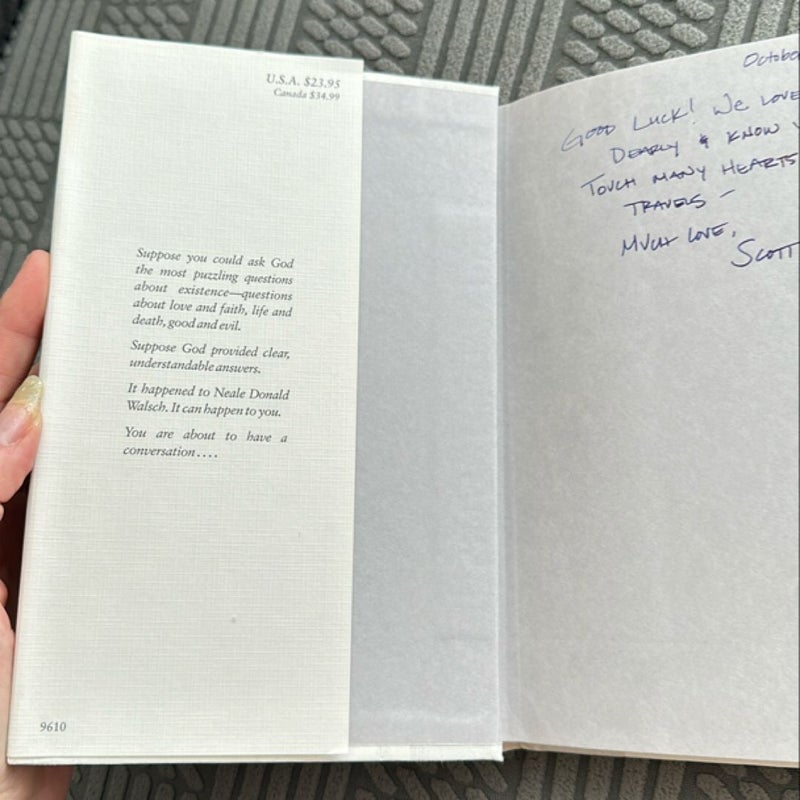 U.S.A. $23.95
Canada $34.99
Suppose you could ask God
the most puzzling questions
about existence—questions
about love and faith, life and
death, good and evil.
Suppose God provided clear,
understandable answers.
It happened to Neale Donald
Walsch. It can happen to you.
You are about to have a
conversation....
9610
Octobe
GOOD LUCK! WE LOVE
DEARLY & KNOW Y
TOUCH MANY HEARTS
TRAVELS –
MUCH LOVE,
SCOTT